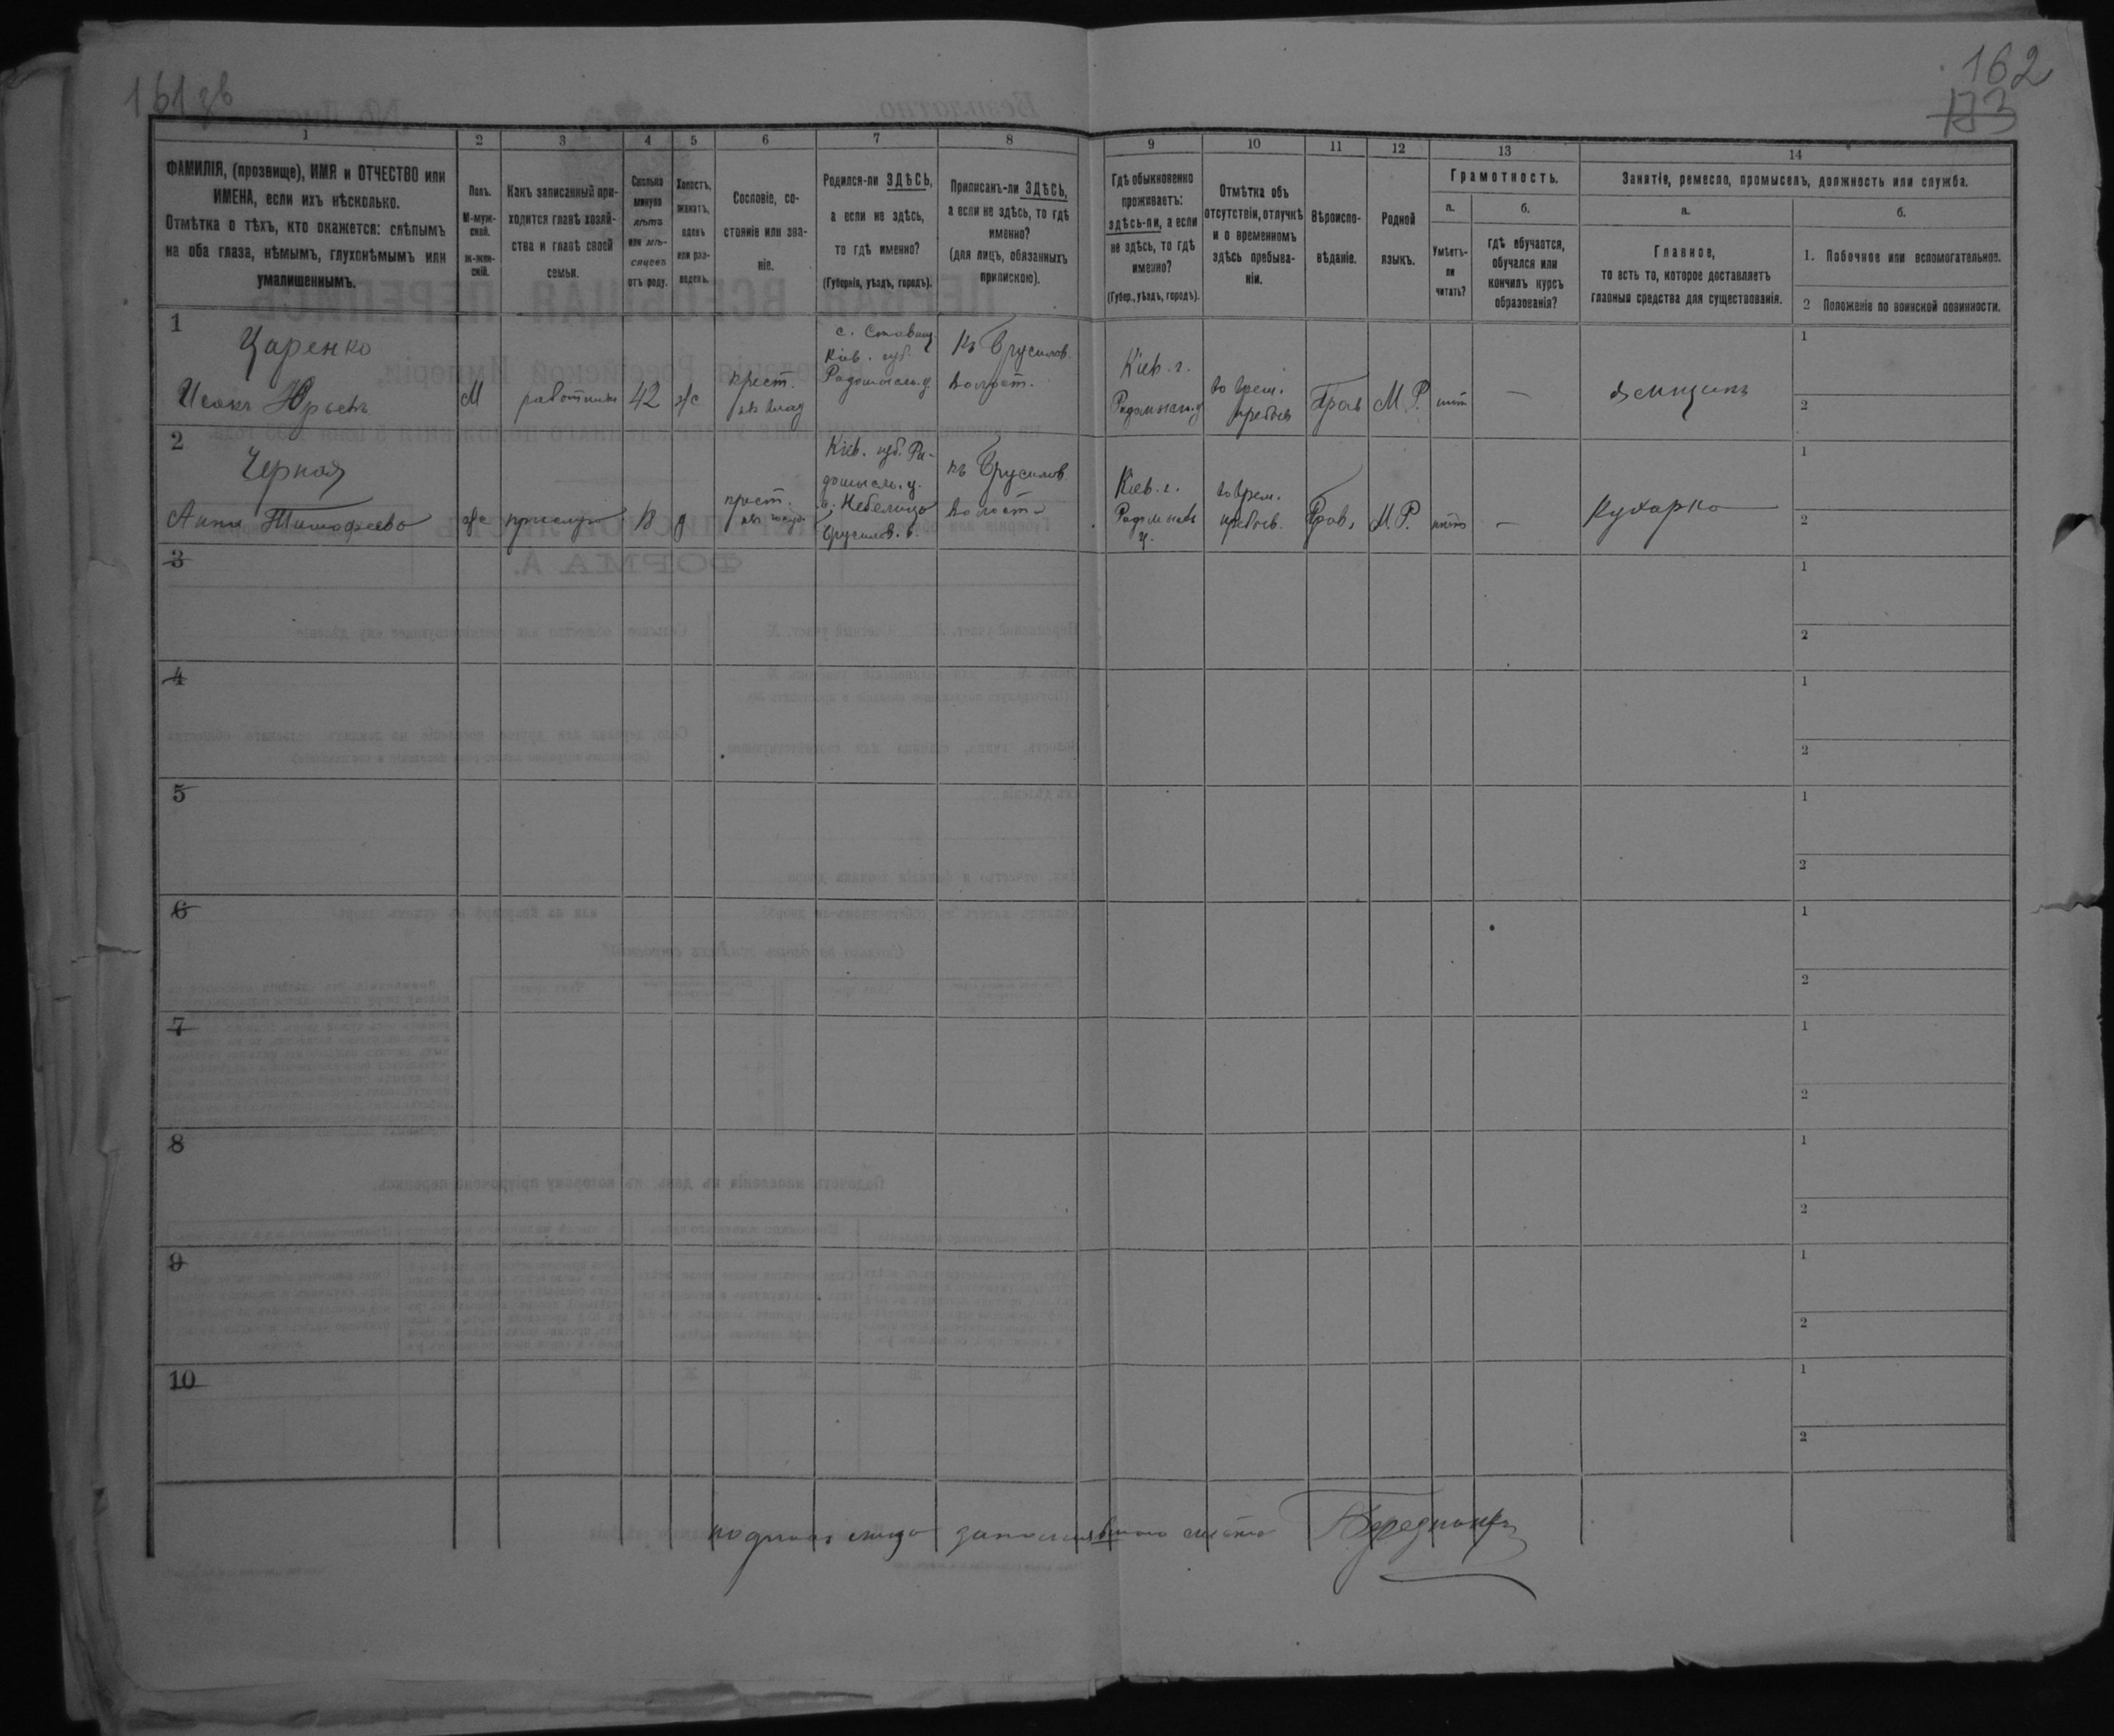 161 зв
162
173
1
2
3
4
5
6
7
8
9
10
11
12
13
14
ФАМИЛІЯ, (прозвище), ИМЯ и ОТЧЕСТВО или
ИМЕНА, если ихъ нѣсколько.
Отмѣтка о тѣхъ, кто окажется: слѣпымъ
на оба глаза, нѣмымъ, глухонѣмымъ или
умалишеннымъ.
Полъ.
М-муж-
ской.
ж-жен-
скій.
Какъ записанный при-
ходится главѣ хозяй-
ства и главѣ своей
семьи.
Сколько
минуло
лѣтъ
или мѣ-
сяцевъ
отъ роду.
Холостъ,
женатъ,
вдовъ
или раз-
веденъ.
Сословіе, со-
стояніе или зва-
ніе.
Родился-ли ЗДѢСЬ,
а если не здѣсь,
то гдѣ именно?
(Губернія, уѣздъ, городъ).
Приписанъ-ли ЗДѢСЬ,
а если не здѣсь, то гдѣ
именно?
(для лицъ, обязанныхъ
припискою).
Гдѣ обыкновенно
проживаетъ:
здѣсь-ли, а если
не здѣсь, то гдѣ
именно?
(Губер., уѣздъ, городъ).
Отмѣтка объ
отсутствіи, отлучкѣ
и о временномъ
здѣсь пребыва-
ніи.
Вѣроиспо-
вѣданіе.
Родной
языкъ.
Грамотность.
а.
Умѣетъ-
ли
читать?
б.
гдѣ обучается,
обучался или
кончилъ курсъ
образованія?
Занятіе, ремесло, промыселъ, должность или служба.
а.
Главное,
то есть то, которое доставляетъ
главныя средства для существованія.
б.
1. Побочное или вспомогательное.
2 Положеніе по воинской повинности.
1
Царенко
Исакъ Юрьевъ
М
работникъ
42
ж
крест.
с. Ставищ
Кіев. губ.
Радомысль. у.
къ Брусилов.
волост.
Кіев. г.
Радомысл. у
во врем.
пребыв
Прав
М. Р.
нѣт
—
Ямщикъ
1
2
2
Черная
Анна Тимофеева
ж
прислуга
18
д
крест.
Кіев. губ. Ра-
домысль. у.
с. Небелица
Брусилов. в.
къ Брусилов
волости
Кіев. г.
Радомысль
у.
во врем.
пребыв.
Прав.
М. Р.
нѣтъ
—
Кухарка
1
2
3
1
2
4
1
2
5
1
2
6
1
2
7
1
2
8
1
2
9
1
2
10
1
2